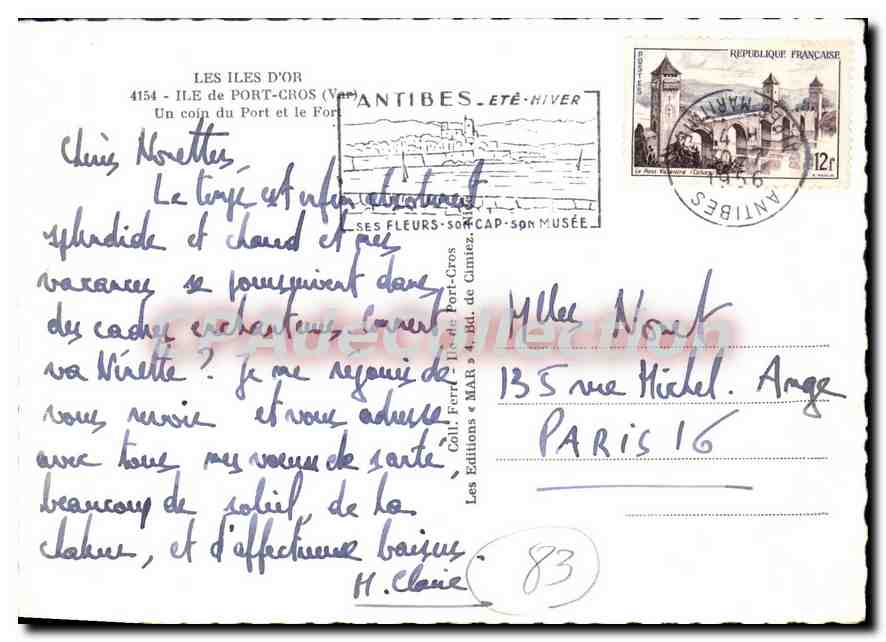 LES ILES D'OR
4154 - ILE de PORT-CROS (Var)
Un coin du Port et le Fort
ANTIBES - ETÉ - HIVER
SES FLEURS - SON CAP - SON MUSÉE
REPUBLIQUE FRANÇAISE
POSTES
12f
Le Pont Valentré (Cahors)
1956
ANTIBES
Chères Norettes
Le temps est enfin absolument
splendide et chaud et mes
vacances se poursuivent dans
des cadres enchanteurs. Comment
va Ninette? Je me réjouis de
vous revoir et vous adresse
avec tous mes voeux de santé,
beaucoup de soleil, de la
chaleur, et d'affectueux baisers.
M. Claire
Coll. Ferré - Ile de Port-Cros
Les Editions « MAR » 4, Bd. de Cimiez, Nice
Mlles Noret
135 rue Michel. Ange
PARIS 16
83
CPAdecollection